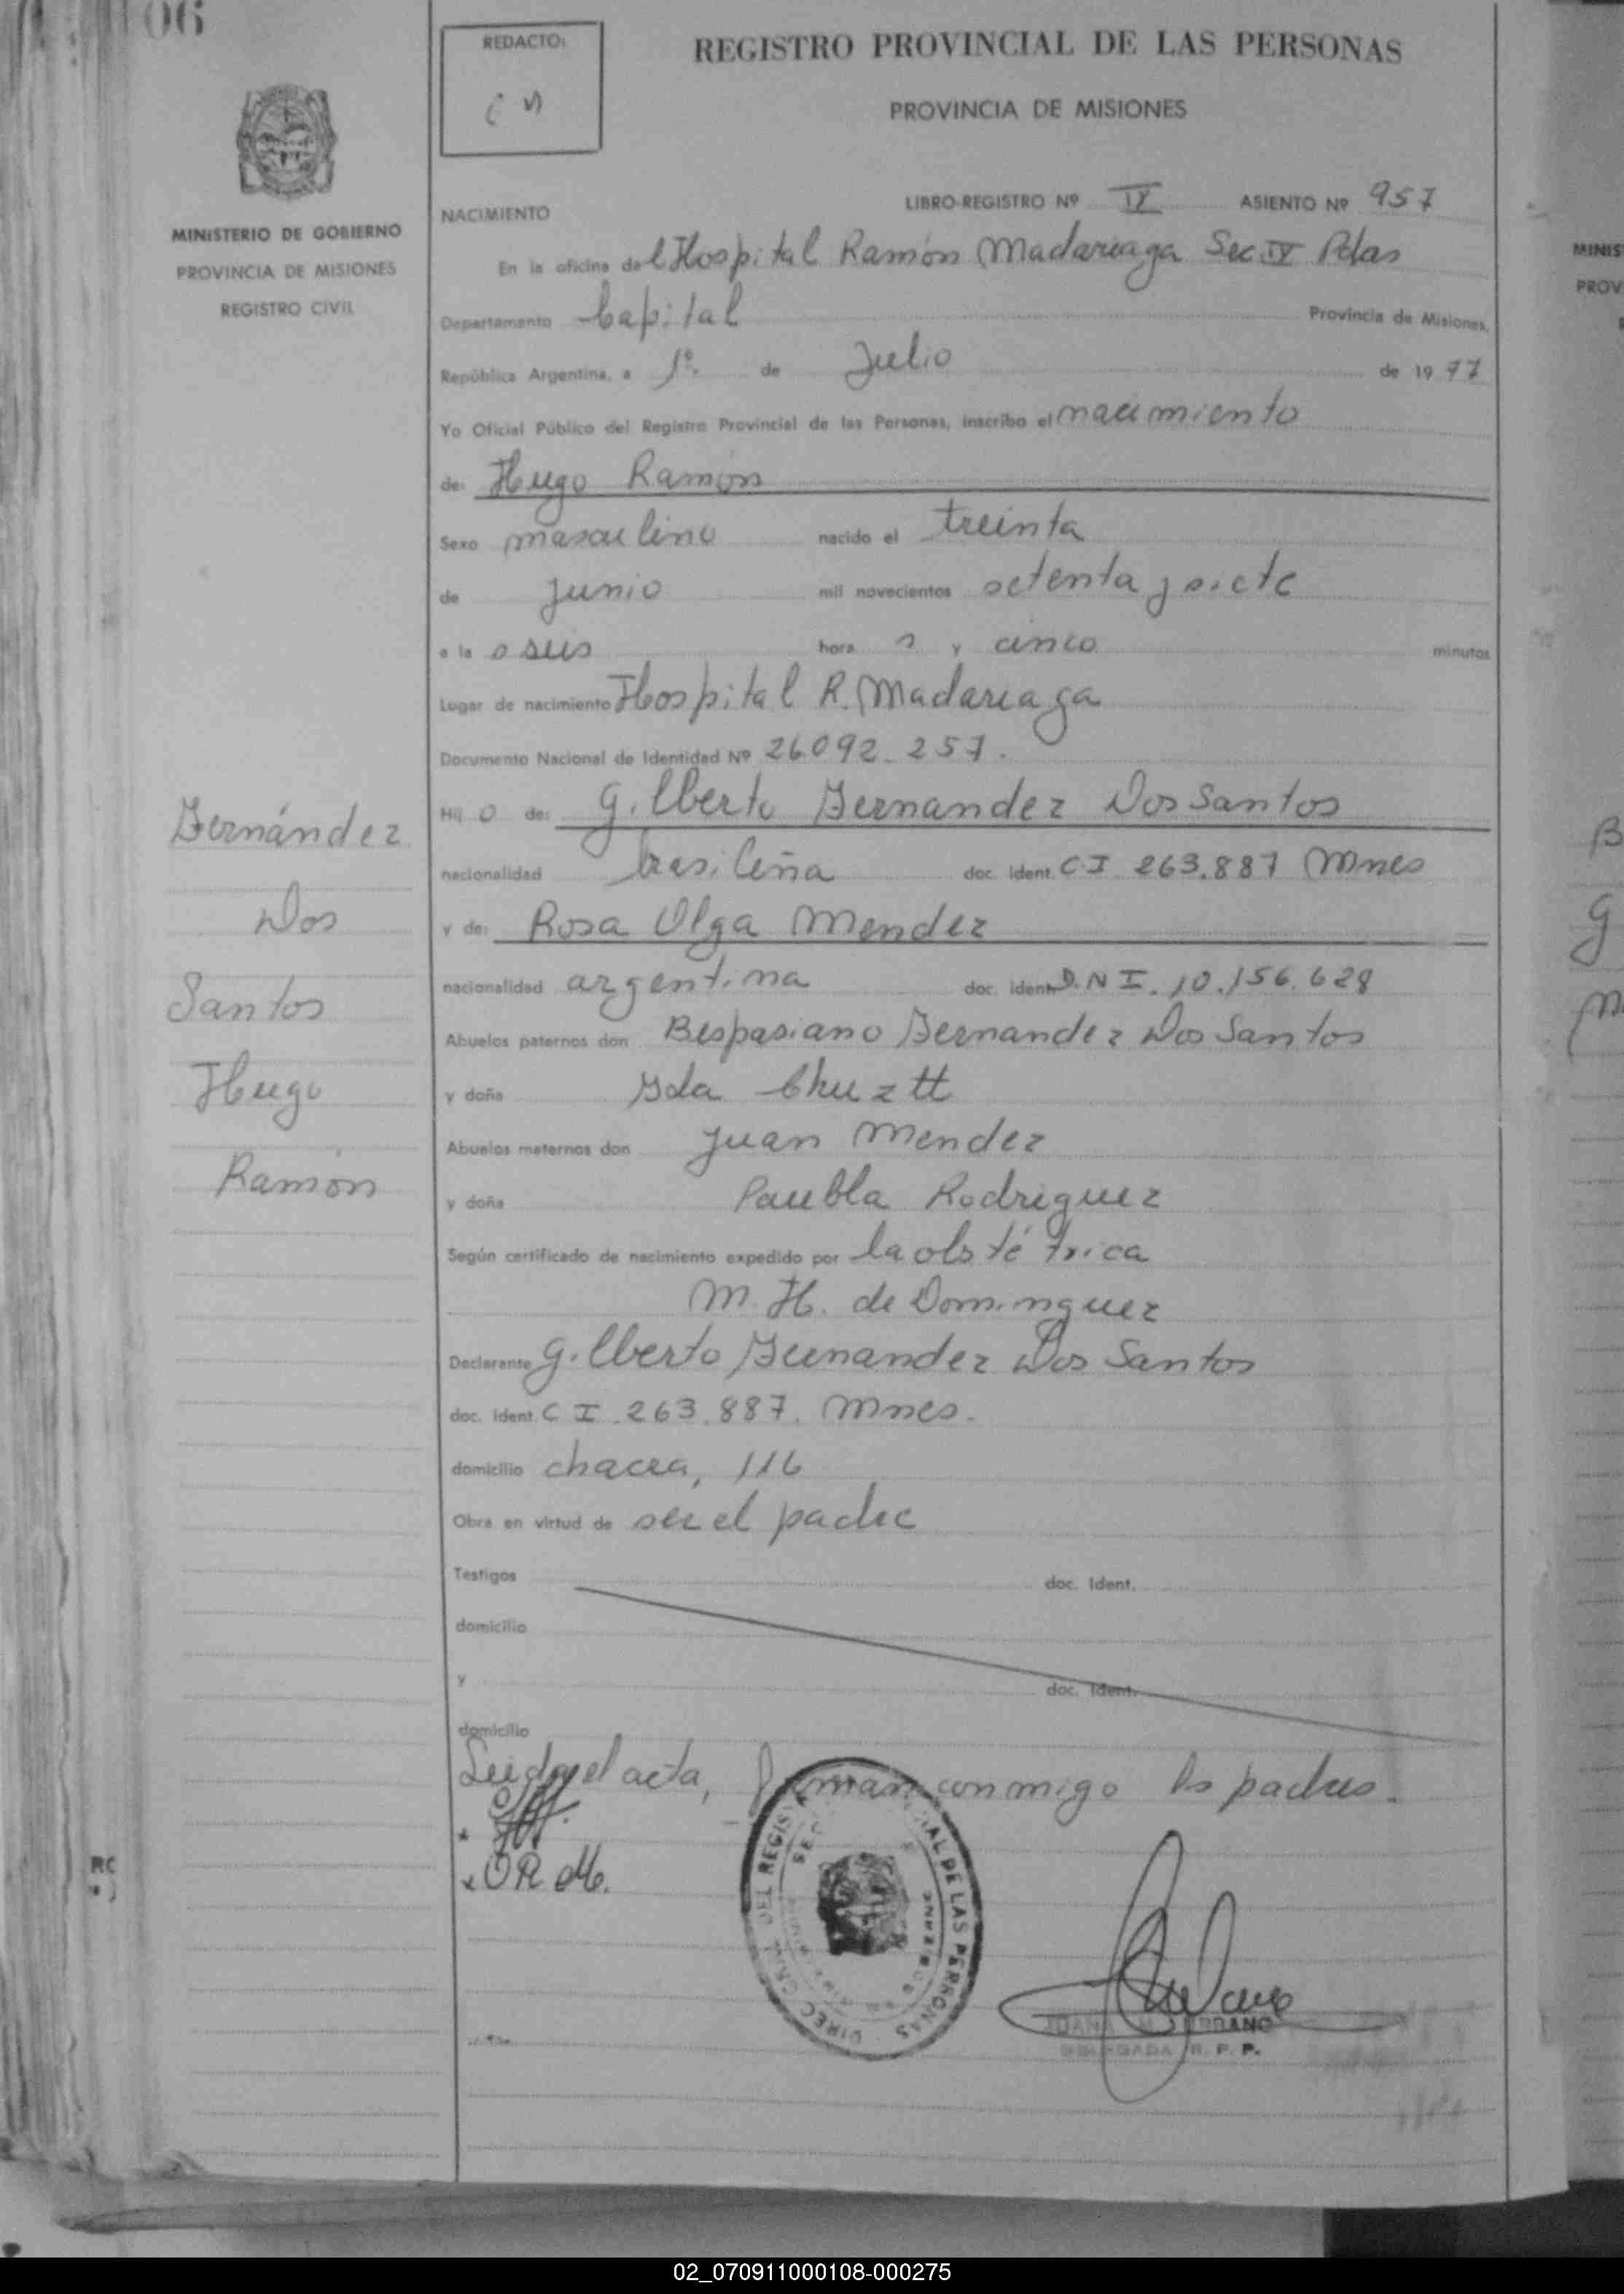 06
REDACTO:
REGISTRO PROVINCIAL DE LAS PERSONAS
PROVINCIA DE MISIONES
MINISTERIO DE GOBIERNO
PROVINCIA DE MISIONES
REGISTRO CIVIL
NACIMIENTO
LIBRO-REGISTRO Nº IV ASIENTO Nº 957
En la oficina del Hospital Ramón Madariaga Sec IV Pdas
Departamento Capital Provincia de Misiones,
República Argentina, a 1º. de Julio de 1977
Yo Oficial Público del Registro Provincial de las Personas, inscribo el nacimiento
de: Hugo Ramón
Sexo masculino nacido el treinta
de junio mil novecientos setenta y siete
a las seis hora s y cinco minutos
Lugar de nacimiento Hospital R. Madariaga
Documento Nacional de Identidad Nº 26092.257.
Hijo de: Gilberto Fernandez Dos Santos
nacionalidad brasileña doc. ident. C I 263.887 Mnes
y de: Rosa Olga Mendez
nacionalidad argentina doc. ident. D.N I. 10.156.628
Abuelos paternos don Bespasiano Fernandez Dos Santos
y doña Yda Chuztt
Abuelos maternos don Juan Mendez
y doña Paubla Rodriguez
Según certificado de nacimiento expedido por la obstétrica
M. H. de Dominguez
Declarante Gilberto Fernandez Dos Santos
doc. ident. C I 263.887. Mnes.
domicilio chacra, 116
Obra en virtud de ser el padre
Testigos doc. Ident.
domicilio
y doc. Ident.
domicilio
Leida el acta, firman conmigo los padres.
O R M.
Fernández
Dos
Santos
Hugo
Ramón
DEL REGIS AL DE LAS PERSONAS DIREC GRAL
DELEGADA R. P. P.
MINIS
PROV
02_070911000108-000275